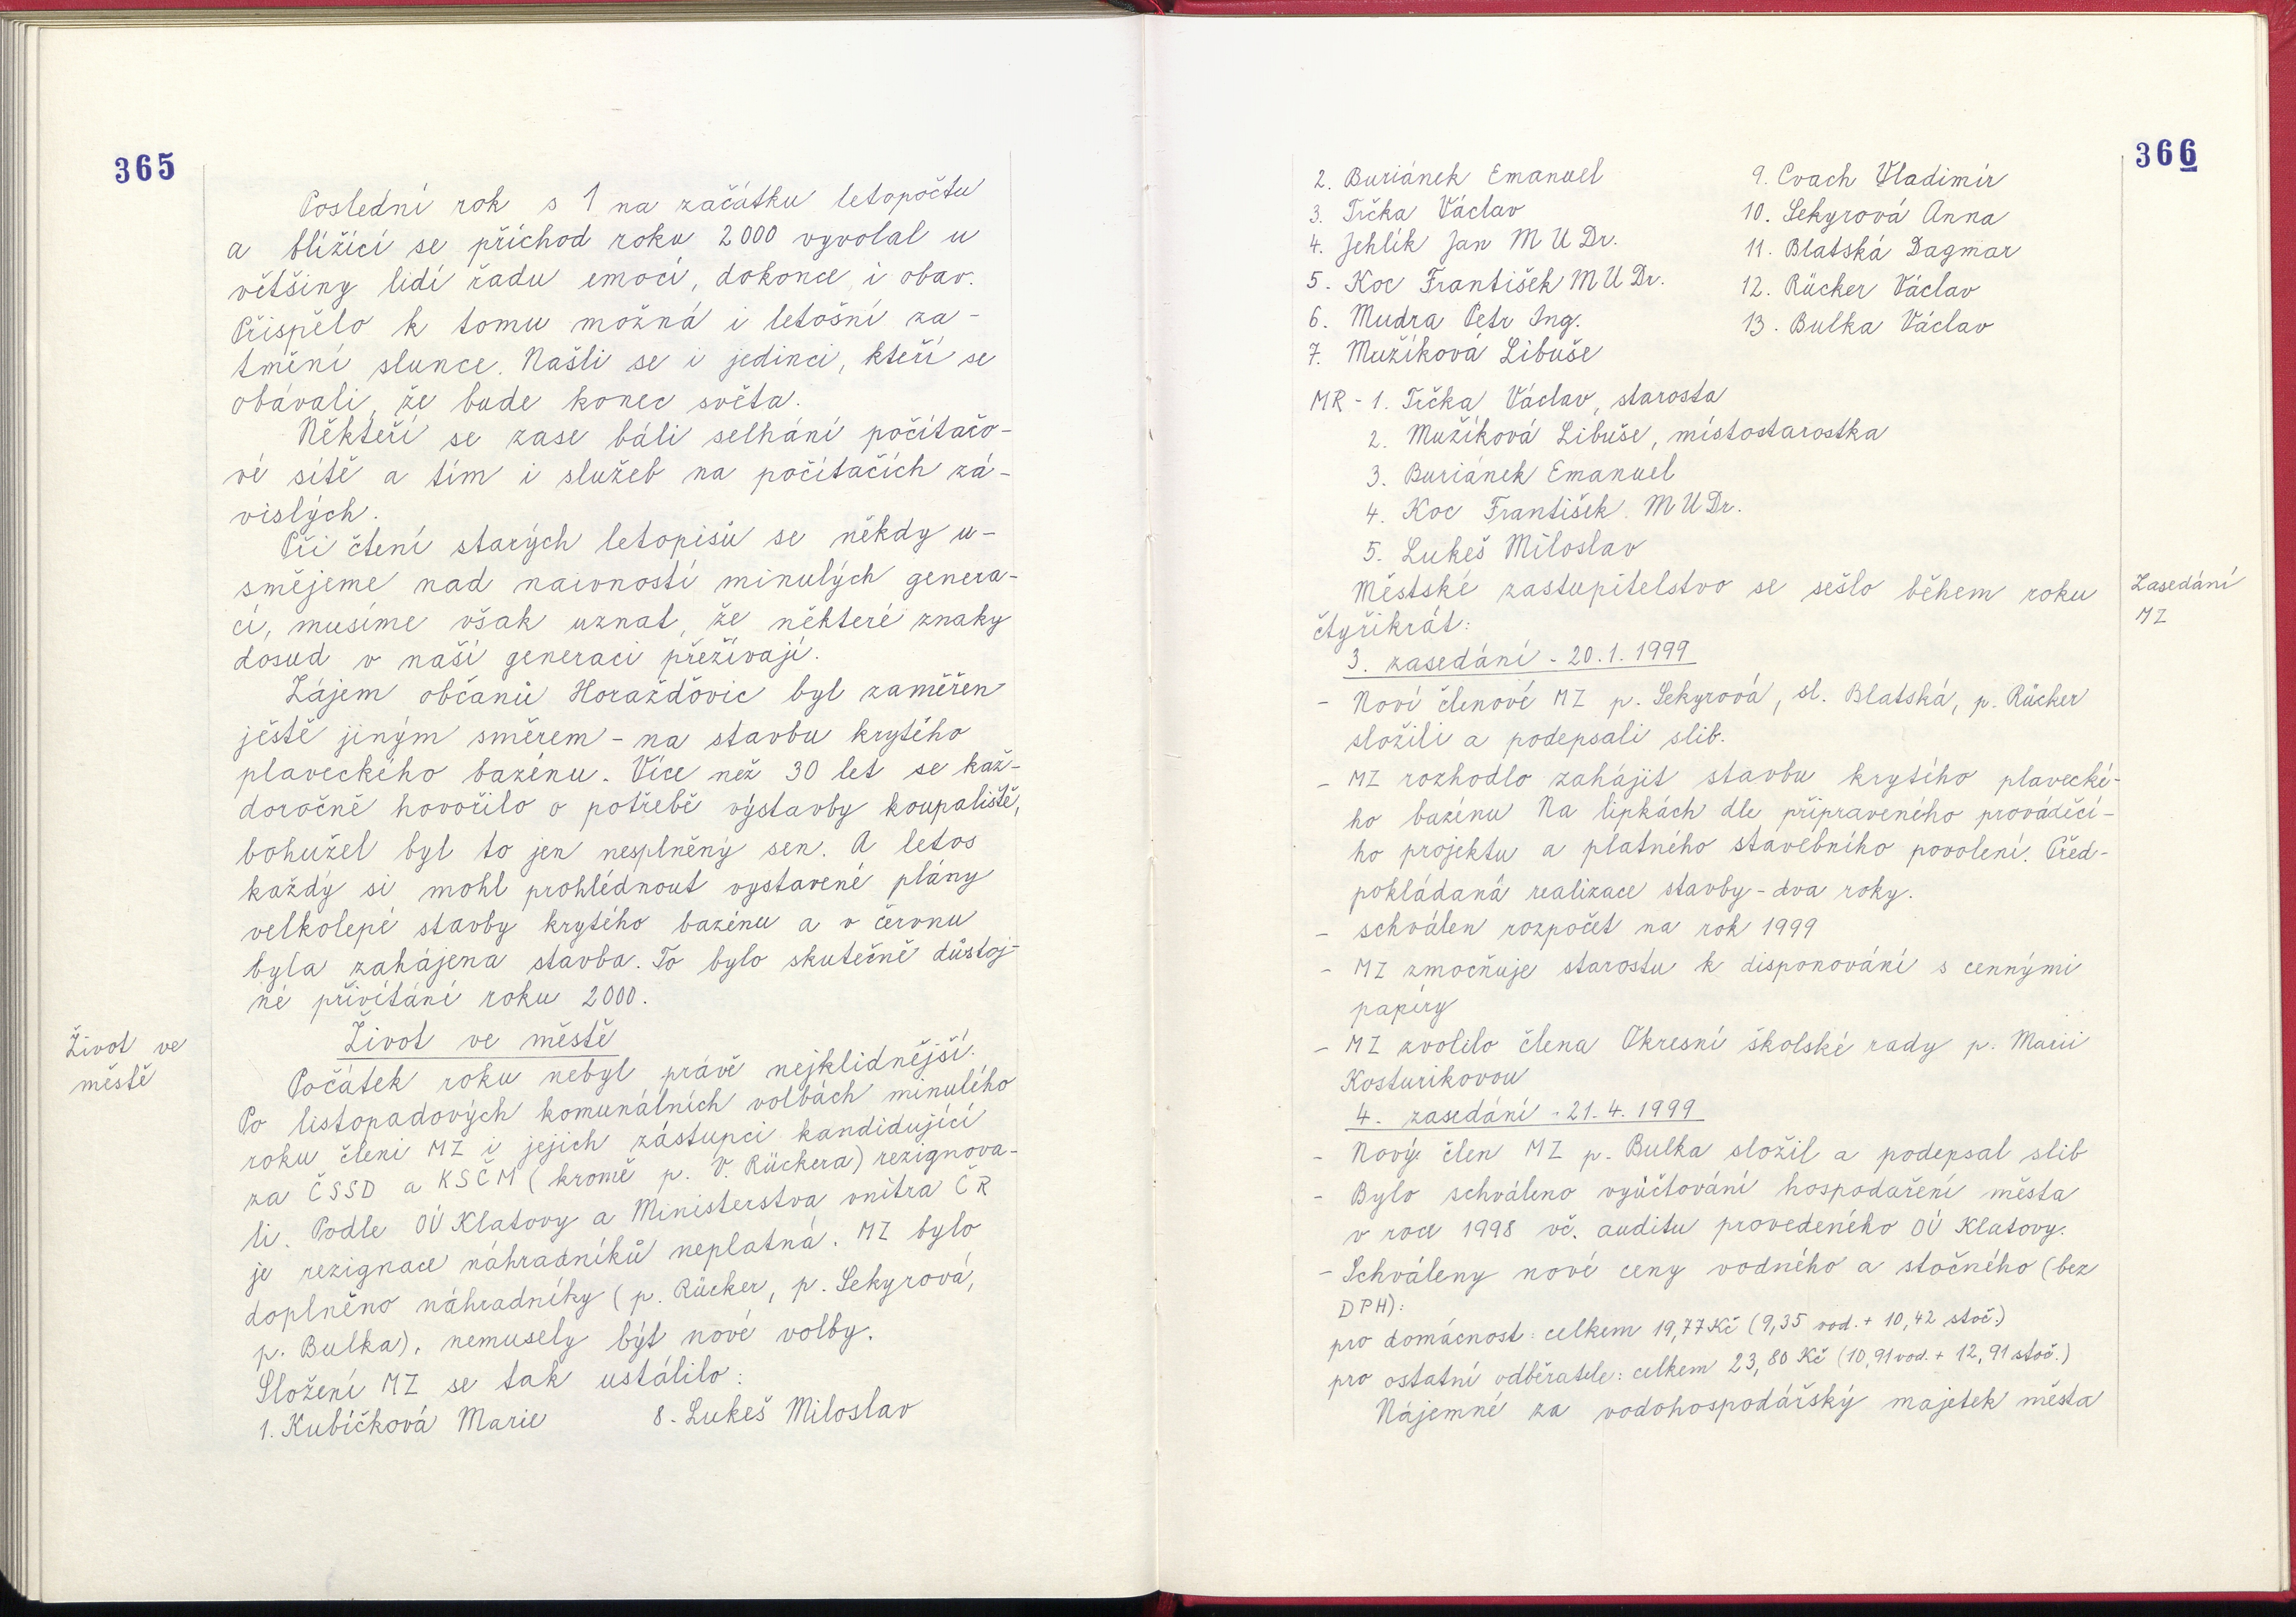 365
Poslední rok s 1 na začátku letopočtu
a blížící se příchod roku 2000 vyvolal u
většiny lidí řadu emocí, dokonce i obav.
Přispělo k tomu možná i letošní za-
tmění slunce. Našli se i jedinci, kteří se
obávali, že bude konec světa.
Někteří se zase báli selhání počítačo-
vé sítě a tím i služeb na počítačích zá-
vislých.
Při čtení starých letopisů se někdy u-
smějeme nad naivností minulých genera-
cí, musíme však uznat, že některé znaky
dosud v naší generaci přežívají.
Zájem občanů Horažďovic byl zaměřen
ještě jiným směrem - na stavbu krytého
plaveckého bazénu. Více než 30 let se kaž-
doročně hovořilo o potřebě výstavby koupaliště,
bohužel byl to jen nesplněný sen. A letos
každý si mohl prohlédnout vystavené plány
velkolepé stavby krytého bazénu a v červnu
byla zahájena stavba. To bylo skutečně důstoj-
né přivítání roku 2000.
Život ve městě
Život ve
městě
Počátek roku nebyl právě nejklidnější.
Po listopadových komunálních volbách minulého
roku členi MZ i jejich zástupci kandidující
za ČSSD a KSČM (kromě p. V. Rückera) rezignova-
li. Podle OÚ Klatovy a Ministerstva vnitra ČR
je rezignace náhradníků neplatná. MZ bylo
doplněno náhradníky (p. Rücker, p. Sekyrová,
p. Bulka), nemusely být nové volby.
Složení MZ se tak ustálilo:
1. Kubíčková Marie 8. Lukeš Miloslav
366
2. Buriánek Emanuel 9. Cvach Vladimír
3. Trčka Václav 10. Sekyrová Anna
4. Jehlík Jan MUDr. 11. Blatská Dagmar
5. Koc František MUDr. 12. Rücker Václav
6. Mudra Petr Ing. 13. Bulka Václav
7. Mužíková Libuše
MR - 1. Trčka Václav, starosta
2. Mužíková Libuše, místostarostka
3. Buriánek Emanuel
4. Koc František MUDr.
5. Lukeš Miloslav
Městské zastupitelstvo se sešlo během roku
čtyřikrát:
Zasedání
MZ
3. zasedání - 20.1.1999
- Noví členové MZ p. Sekyrová, sl. Blatská, p. Rücker
složili a podepsali slib.
- MZ rozhodlo zahájit stavbu krytého plavecké-
ho bazénu Na lipkách dle připraveného prováděcí-
ho projektu a platného stavebního povolení. Před-
pokládaná realizace stavby - dva roky.
- schválen rozpočet na rok 1999
- MZ zmocňuje starostu k disponování s cennými
papíry
- MZ zvolilo člena Okresní školské rady p. Marii
Kosturikovou
4. zasedání - 21.4.1999
- Nový člen MZ p. Bulka složil a podepsal slib
- Bylo schváleno vyúčtování hospodaření města
v roce 1998 vč. auditu provedeného OÚ Klatovy.
- Schváleny nové ceny vodného a stočného (bez
DPH):
pro domácnost: celkem 19,77 Kč (9,35 vod. + 10,42 stoč.)
pro ostatní odběratele: celkem 23,80 Kč (10,91 vod. + 12,91 stoč.)
Nájemné za vodohospodářský majetek města